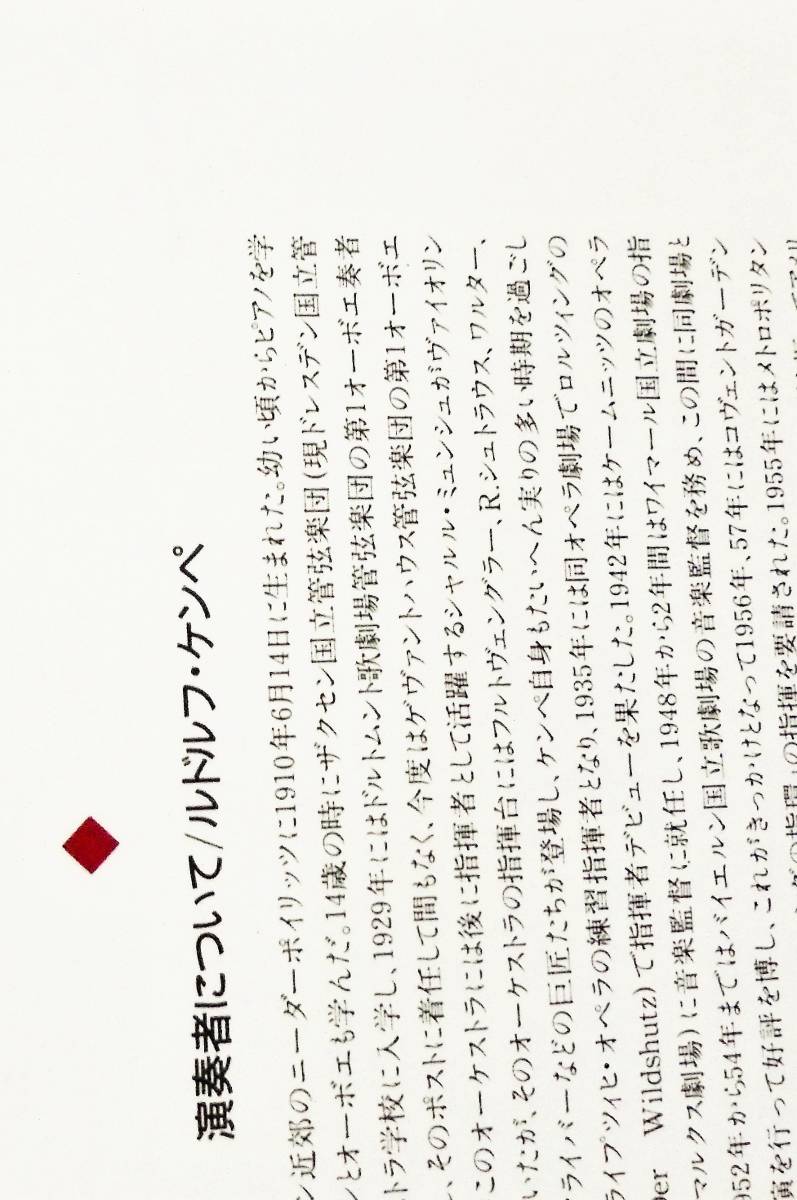 演奏者について/ルドルフ・ケンペ
ン近郊のニーダーポイリッツに1910年6月14日に生まれた。幼い頃からピアノを学
ンとオーボエも学んだ。14歳の時にザクセン国立管弦楽団(現ドレスデン国立管
トラ学校に入学し、1929年にはドルトムント歌劇場管弦楽団の第1オーボエ奏者
、そのポストに着任して間もなく、今度はゲヴァントハウス管弦楽団の第1オーボエ
このオーケストラには後に指揮者として活躍するシャルル・ミュンシュがヴァイオリン
いたが、そのオーケストラの指揮台にはフルトヴェングラー、R.シュトラウス、ワルター、
ライバーなどの巨匠たちが登場し、ケンペ自身もたいへん実りの多い時期を過ごし
ライプツィヒ・オペラの練習指揮者となり、1935年には同オペラ劇場でロルツィングの
Der Wildshutz)で指揮者デビューを果たした。1942年にはケームニッツのオペラ
マルクス劇場)に音楽監督に就任し、1948年から2年間はワイマール国立劇場の指
52年から54年まではバイエルン国立歌劇場の音楽監督を務め、この間に同劇場と
演を行って好評を博し、これがきっかけとなって1956年、57年にはコヴェントガーデン
グの指環」の指揮を要請された。1955年にはメトロポリタン